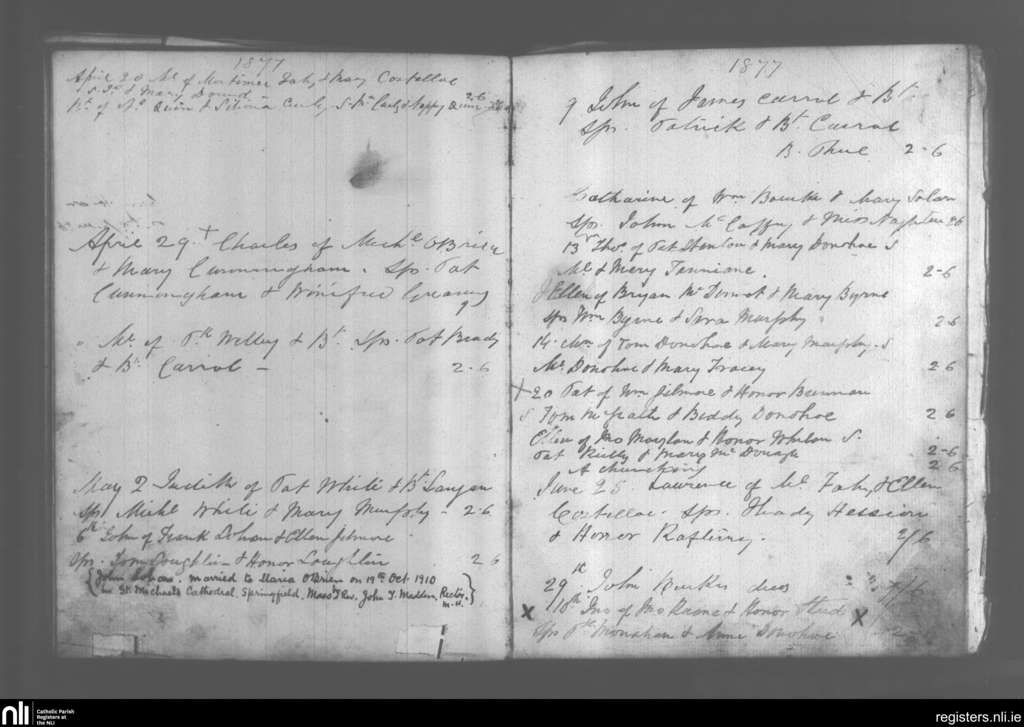 1877
April 20 Ml. of Mortimer Fahy & Mary Costelloe
S. Jn & Mary
Pt. of Ml. Quin & Sibina Curly, S. Pk Curly & Nappy Quinn 2-6
April 29. + Charles of Michl O'Brien
& Mary Cunningham. Sps. Pat
Cunningham & Winifred Greaney
" Ml. of Pk Welby & Bt. Sps. Pat Brady
& Bt. Carrol — 2-6
May 2 Judith of Pat White & Bt Langan
Sps Michl White & Mary Murphy - 2-6
6th John of Frank Lohan & Ellen Gilmore
Sps. Tom Loughlin & Honor Loughlin 2 6
{John Lohan. married to Maria O'Brien on 19th Oct 1910
in St Michael's Cathedral, Springfield, Mass. Rev. John T. Madden, Rector.}
M-H.
1877
9 John of James Carrol & Bt
Sps. Patrick & Bt Carrol
B. Thue 2-6
Catharine of Wm Bourke & Mary
Sps. John McCaffry & Miss 2 6
13 Thos. of Pat Stanton & Mary Donohoe S
Ml. & Mary Fanniane. 2-6
Ellen of Bryan McDermot & Mary Byrne
Sps Wm Byrne & Sara Murphy 2 6
14 of Tom Donohoe & Mary Murphy. S
Ml. Donohoe & Mary Tracey 2 6
+ 20 Pat of Wm Gilmore & Honor Brennan
S Tom McGrath & Biddy Donohoe 2 6
Ellen of Ths Moylan & Honor Whelan S.
Pat Reilly & Mary McDonagh 2-6
A churching 2 6
June 25. Lawrence of Ml. Fahy & Ellen
Costelloe. Sps. Thady Hession
& Honor Raftery. 2/6
29th John Burke
x 18th Jno of & Honor x
Sps Pk Monahan & Anne Donohoe
nli
Catholic Parish
Registers at
the NLI
registers.nli.ie